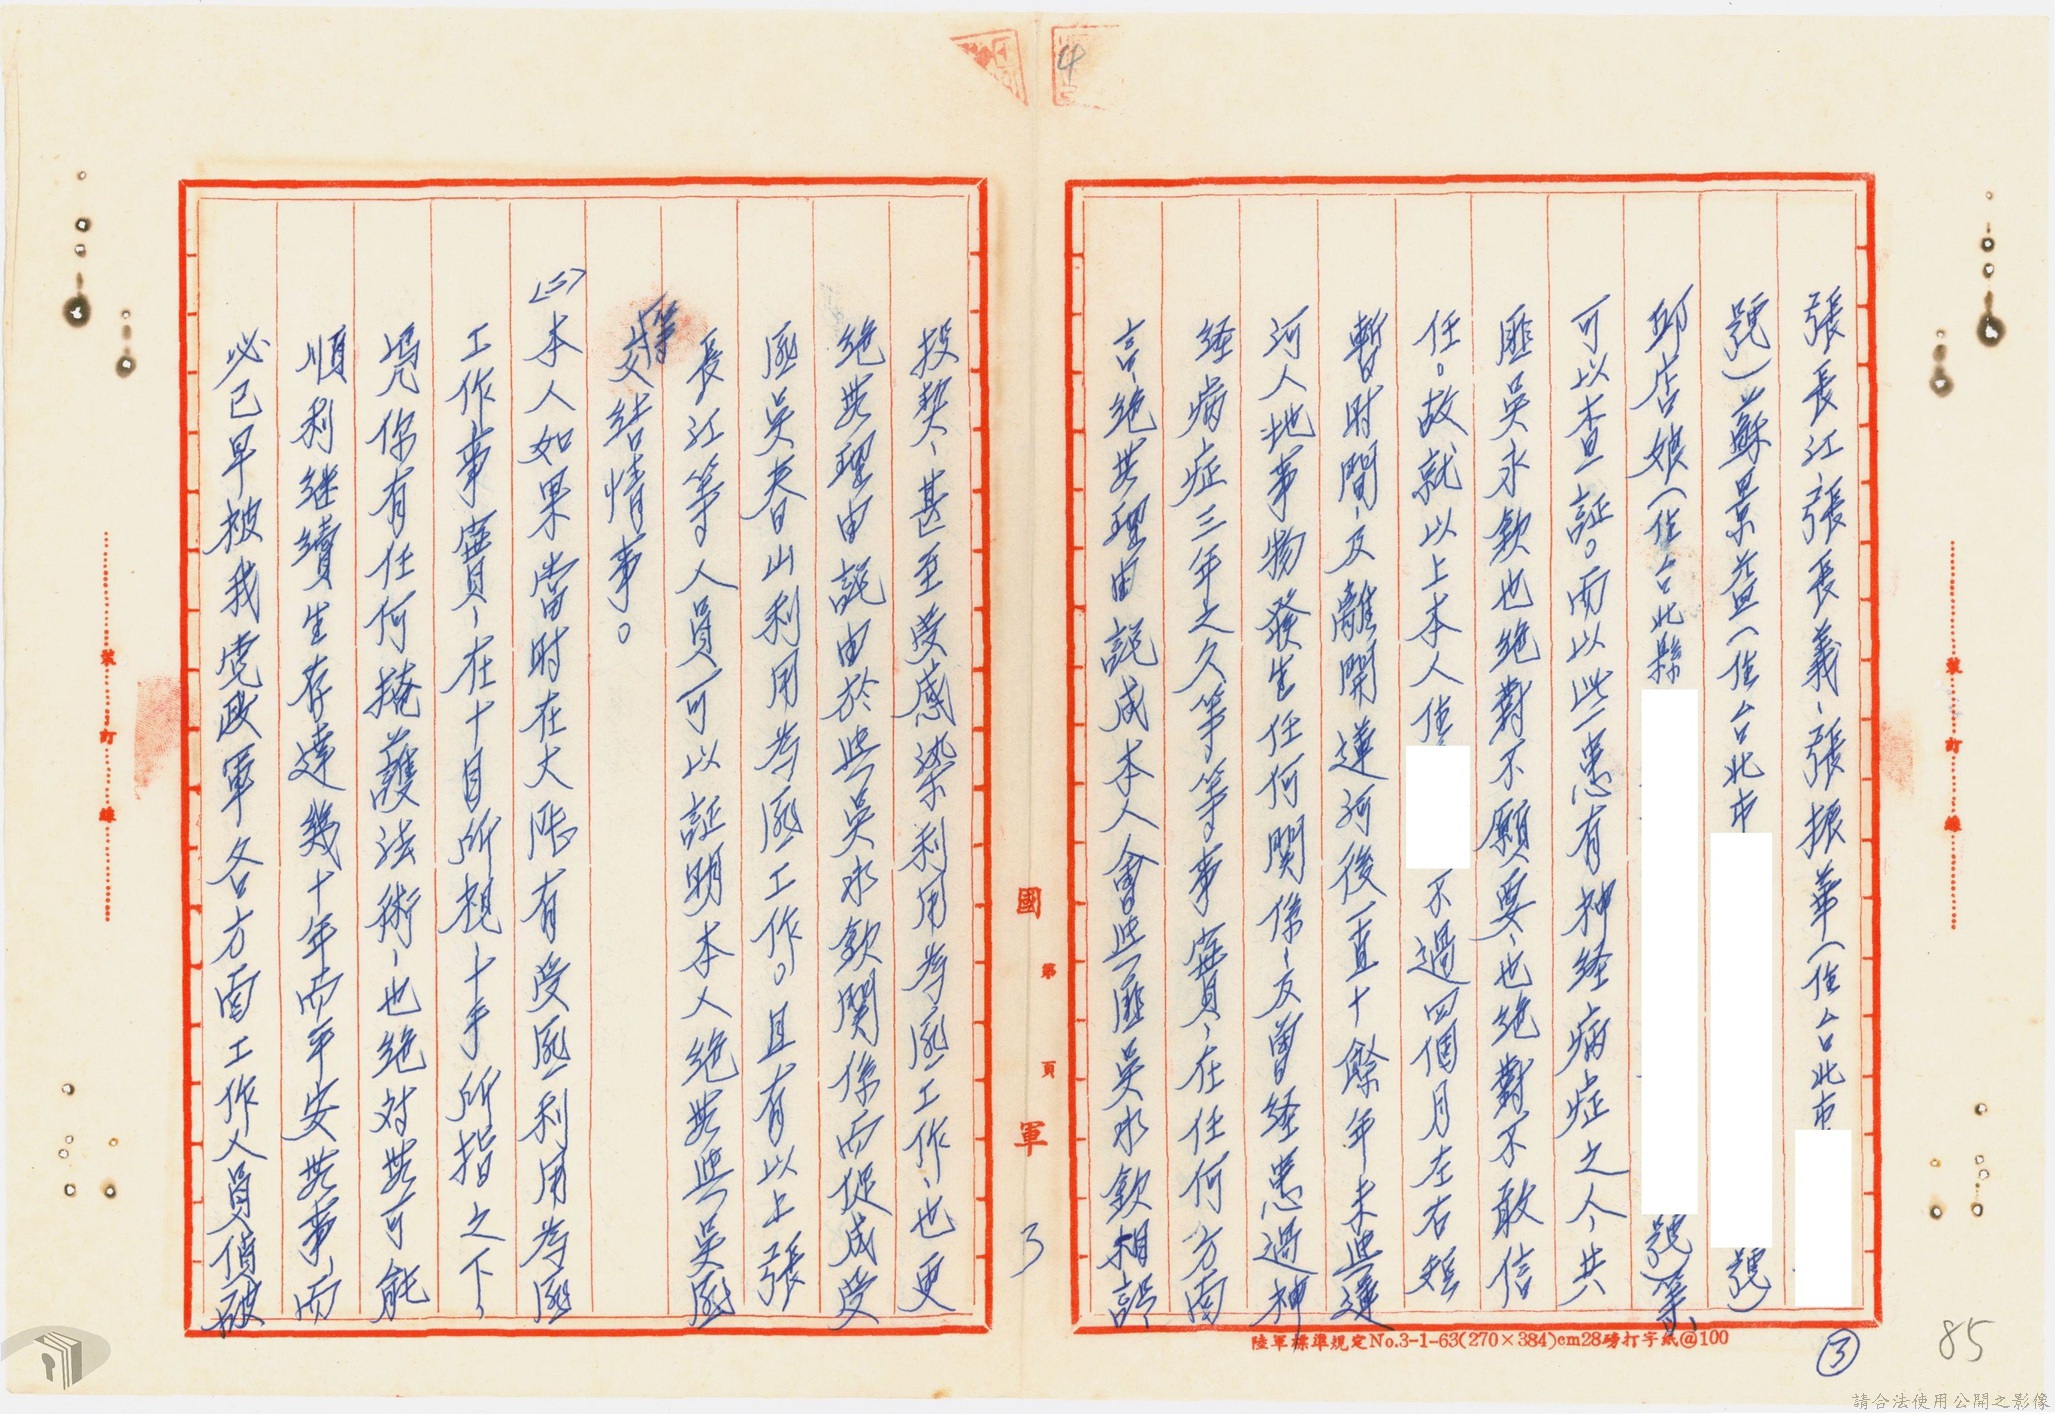 張長江、張長義、張振華(住台北市
號)蘇景益(住台北市號)
邱店娘(住台北縣號)等
可以查証。而以此患有神経病症之人、共
匪吳永欽也絕對不願要、也絕對不敢信
任。故就以上本人住不過四個月左右短
暫時間、及離開蓮河後一直十餘年未與蓮
河人地事物發生任何関係、及曾経患過神
経病症三年之久等等事實、在任何方面
言、絕無理由説成本人會與匪吳永欽相認
投契、甚至受感染利用為匪工作、也更
絕無理由説由於與吳永欽関係而促成受
匪吳春山利用為匪工作。且有以上張
長江等人員可以証明本人絕無與吳匪
交結情事。
㈡本人如果當時在大陸有受匪利用為匪
工作事實、在十目所視十手所指之下、
順利継續生存達幾十年而平安無事、而
必已早被我党政軍各方面工作人員偵破
國軍
第 頁
3
裝訂線
裝訂線
陸軍標準規定No.3-1-63(270×384)cm28磅打字紙@100
③
85
4
請合法使用公開之影像